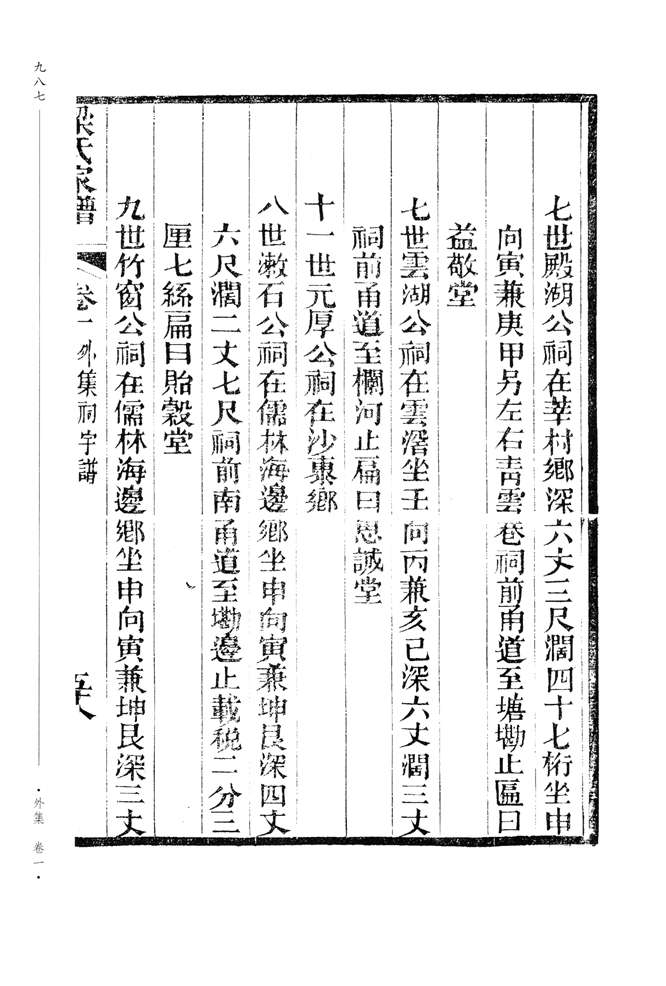 七世殿湖公祠在莘村鄉深六丈三尺濶四十七桁坐申
向寅兼庚甲另左右青雲巷祠前甬道至塘墈止匾曰
益敬堂
七世雲湖公祠在雲滘坐壬向丙兼亥己深六丈濶三丈
祠前甬道至欄河止扁曰思誠堂
十一世元厚公祠在沙東鄉
八世漱石公祠在儒林海邊鄉坐申向寅兼坤艮深四丈
六尺濶二丈七尺祠前南甬道至墈邊止載稅二分三
厘七絲扁曰貽穀堂
九世竹窗公祠在儒林海邊鄉坐申向寅兼坤艮深三丈
梁氏家譜
卷一外集祠宇譜
五十八
九八七
·外集 卷一·